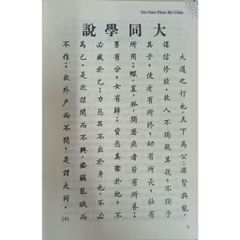 Sào Nam Phan Bội Châu
大同學說
大道之行也天下為公;選賢與能,
講信修睦,故人不獨親其親,不獨子
其子,使老有所終,幼有所長,壯有
所用;鰥,寡,孤,獨廢疾者皆有所養;
男有分,女有歸;貨惡其棄於地,不
必藏於己;力惡其不出於身也,不必
為己,是故謀閉而不興,盜竊亂賊而
不作;故外戶而不閉,是謂大同。(1)